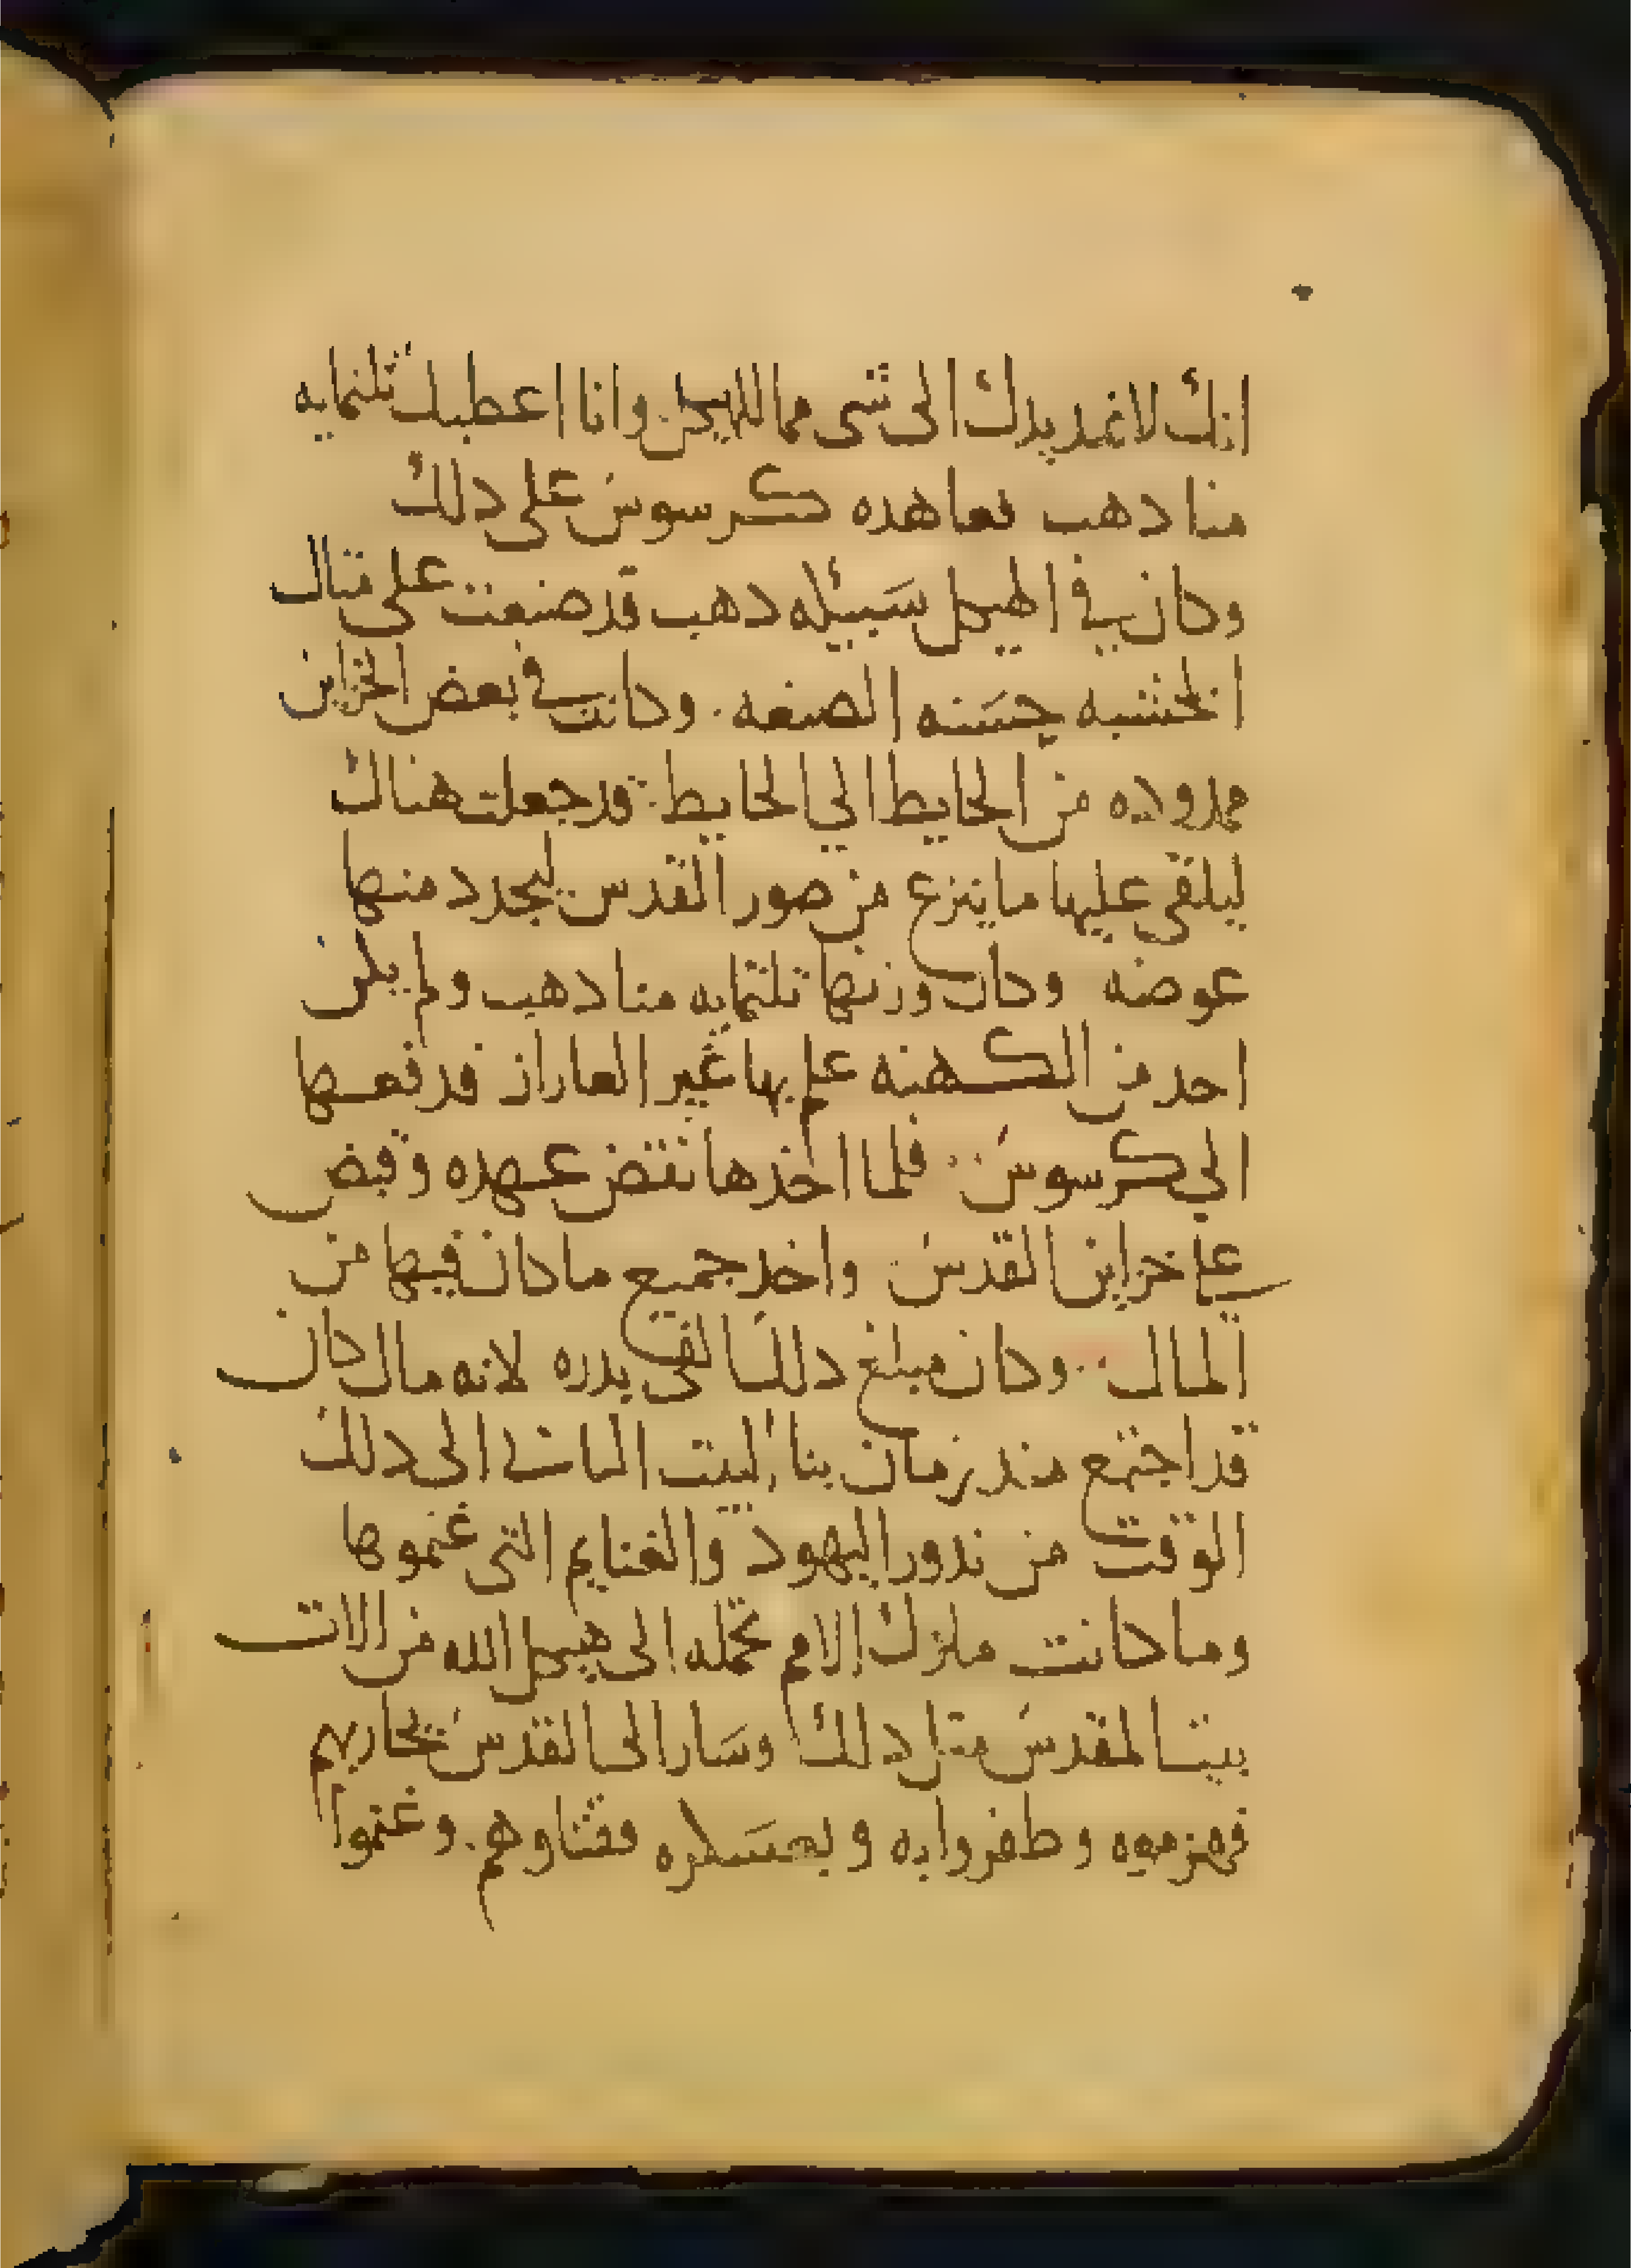 انك لا تمد يدك الى شى مما للهيكل. وانا اعطيك تلتمايه
منا دهب فعاهده كرسوس على دلك
وكان في الهيكل سبيكه دهب قد صنعت على متال
الخشبه حسنه الصنعه. وكانت في بعض الخزاين
ممدوده من الحايط الي الحايط. قد جعلت هناك
ليلقى عليها ما ينزع من صور القدس ليجدد منها
عوضه وكان وزنها تلتمايه منا دهب ولم يكن
احد من الكهنه علم بها غير العازار فدفعها
الي كرسوس فلما اخذها نقض عهده وقبض
على خزاين القدس واخد جميع ما كان فيها من
المال وكان مبلغ دلك الفى بدره لانه مال كان
قد اجتمع مند زمان بنا البيت التانى الى دلك
الوقت من ندور اليهود والغنايم التى غنموها
وما كانت ملوك الامم تحمله الى هيكل الله من الات
بيت المقدس متل دلك وسار الى القدس يحاربهم
فهزموه وظفروا به و بعسكره فقتلوهم. وغنموا